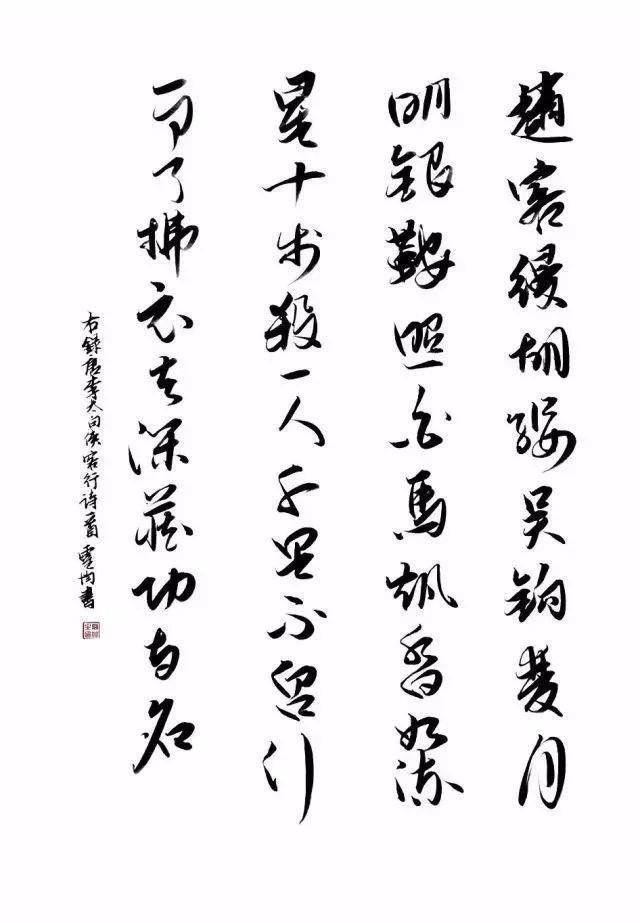 趙客縵胡纓吳鉤月
明銀鞍照白馬颯沓如流
星十步殺一人千里不留行
事了拂衣去深藏功與名
右錄唐李太白俠客行詩一首 書